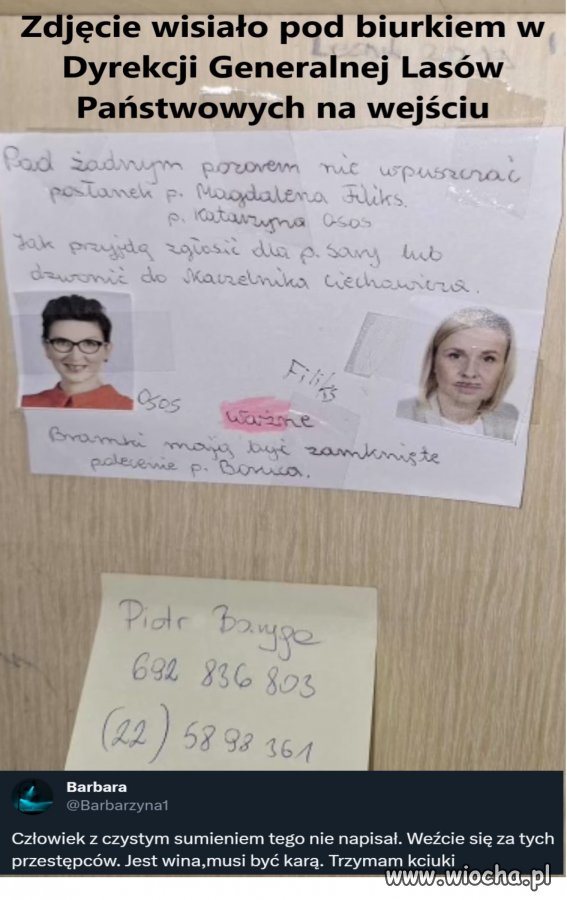 Zdjęcie wisiało pod biurkiem w
Dyrekcji Generalnej Lasów
Państwowych na wejściu
Pod żadnym pozorem nie wpuszczać
posłanek p. Magdalena Filiks.
p. Katarzyna Osos
Jak przyjdą zgłosić dla p. Sary lub
dzwonić do Naczelnika Ciechowicza.
Osos
Filiks
Ważne
Bramki mają być zamknięte
polecenie p.
Piotr
692 836 803
(22) 58 98 361
Barbara
@Barbarzyna1
Człowiek z czystym sumieniem tego nie napisał. Weźcie się za tych
przestępców. Jest wina,musi być karą. Trzymam kciuki
www.wiocha.pl